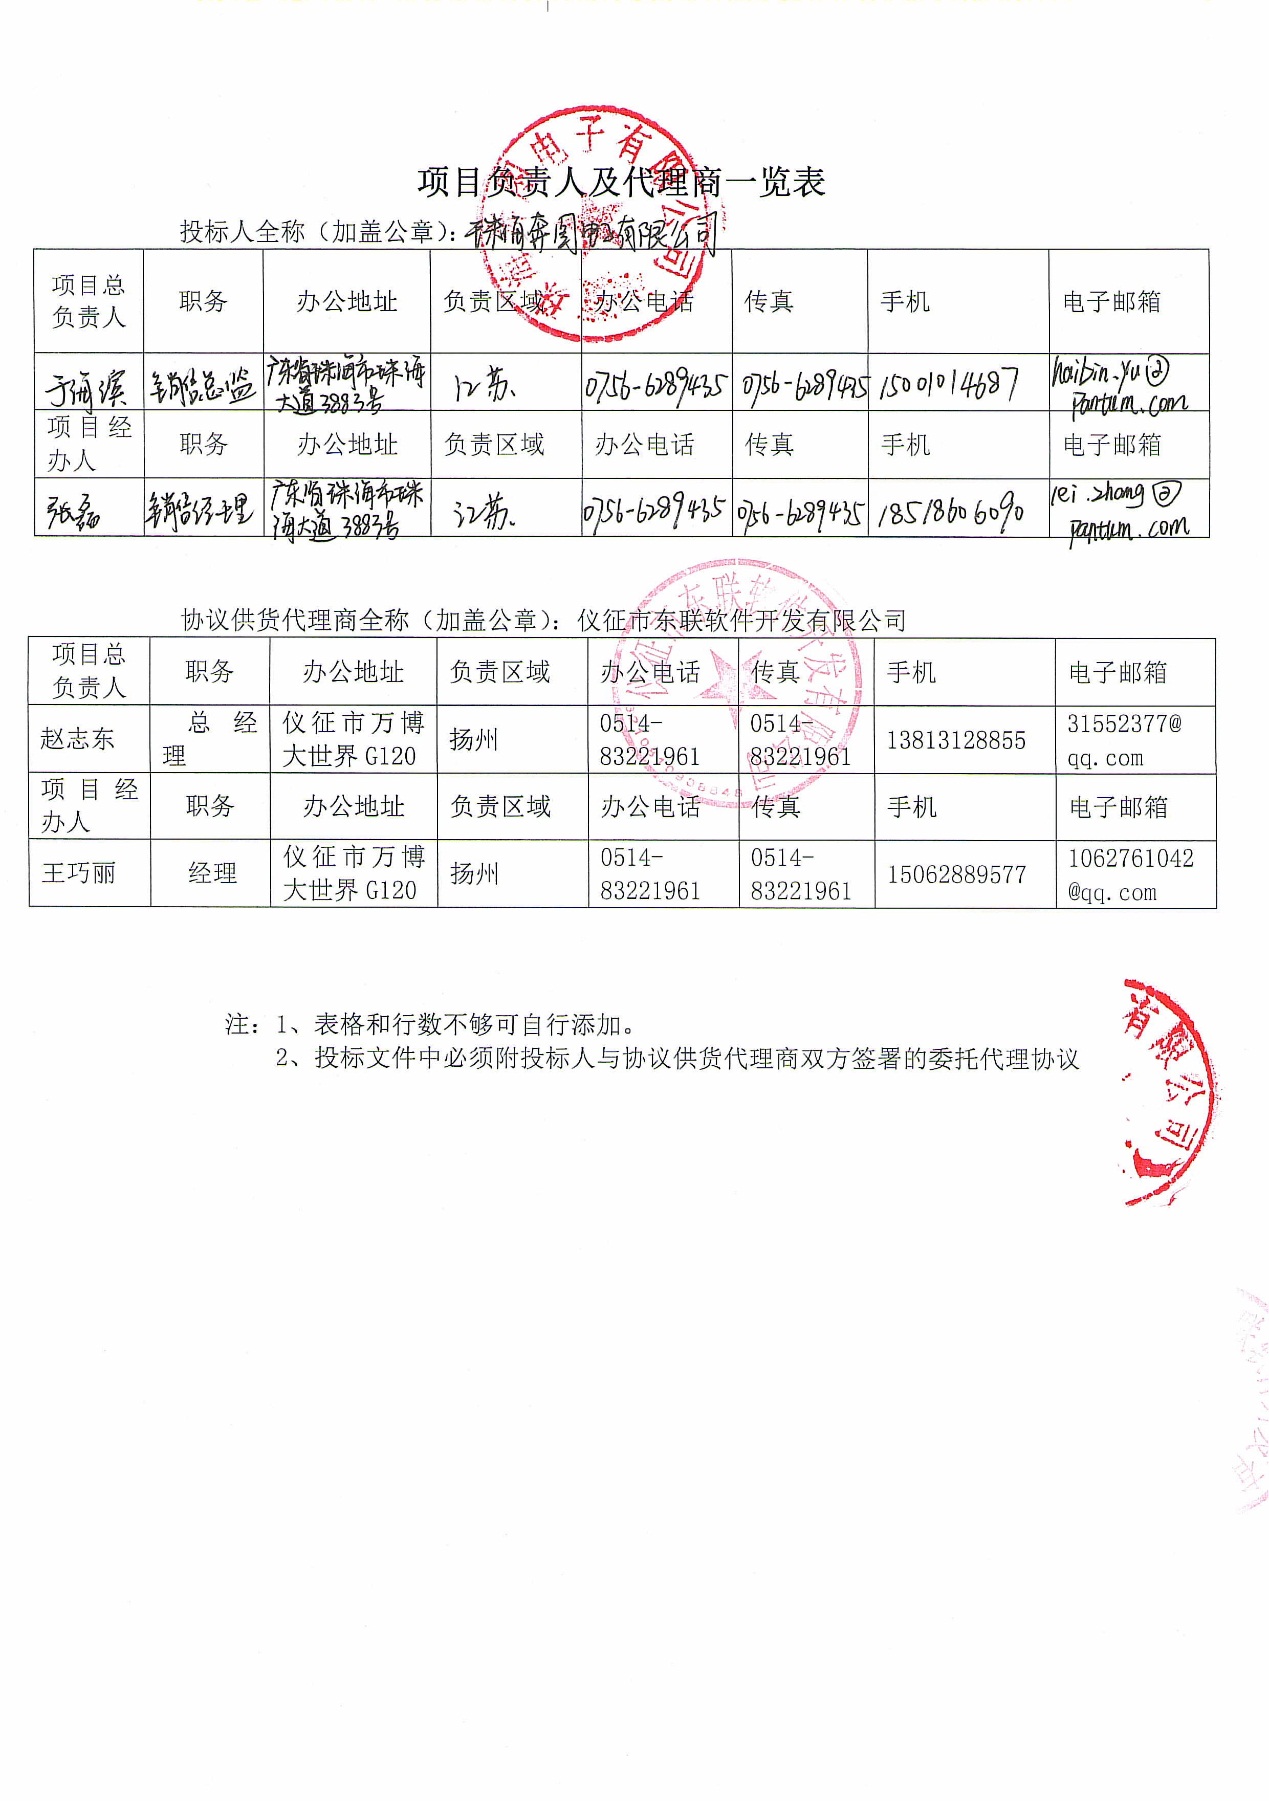 项目负责人及代理商一览表
投标人全称（加盖公章）：珠海奔图电子有限公司
项目总负责人 职务 办公地址 负责区域 办公电话 传真 手机 电子邮箱
于海滨 销售总监 广东省珠海市珠海大道3883号 江苏 0756-6289435 0756-6289435 15001014687 haibin.yu@pantum.com
项目经办人 职务 办公地址 负责区域 办公电话 传真 手机 电子邮箱
张磊 销售经理 广东省珠海市珠海大道3883号 江苏 0756-6289435 0756-6289435 18518606090 lei.zhang@pantum.com
协议供货代理商全称（加盖公章）：仪征市东联软件开发有限公司
项目总负责人 职务 办公地址 负责区域 办公电话 传真 手机 电子邮箱
赵志东 总经理 仪征市万博大世界G120 扬州 0514-83221961 0514-83221961 13813128855 31552377@qq.com
项目经办人 职务 办公地址 负责区域 办公电话 传真 手机 电子邮箱
王巧丽 经理 仪征市万博大世界G120 扬州 0514-83221961 0514-83221961 15062889577 1062761042@qq.com
注：1、表格和行数不够可自行添加。
2、投标文件中必须附投标人与协议供货代理商双方签署的委托代理协议
有限公司